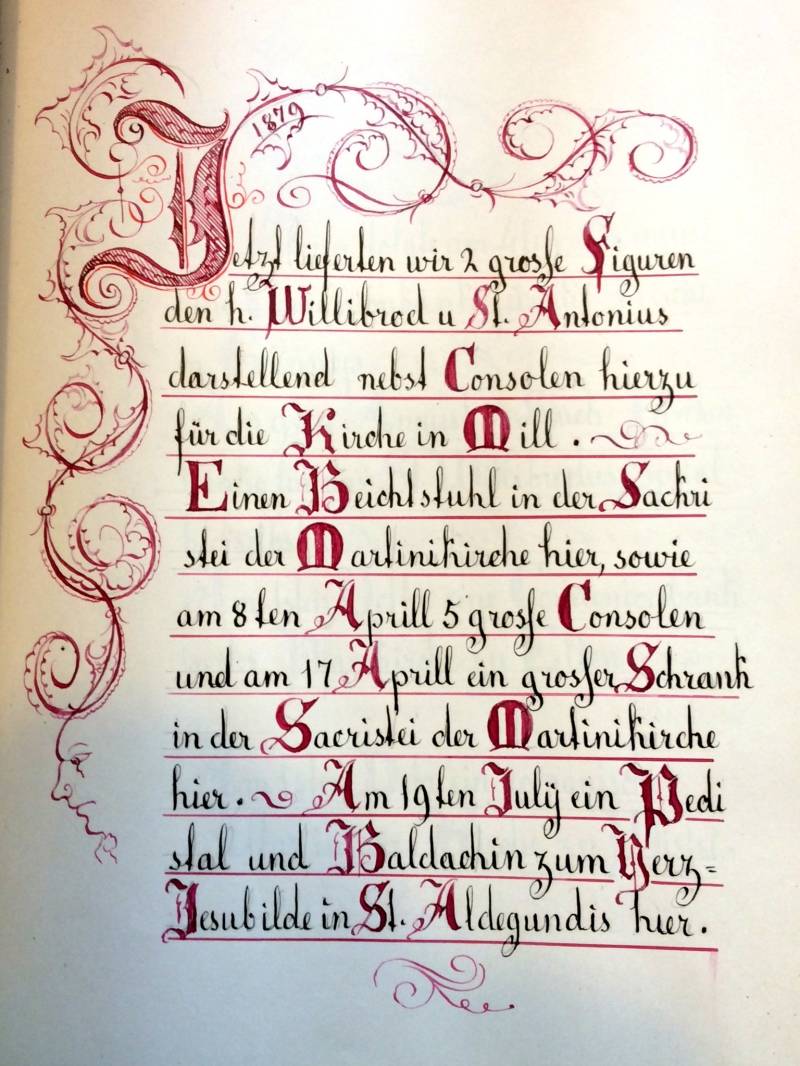 1879
Jetzt lieferten wir 2 grosse Figuren
den h. Willibrod u St. Antonius
darstellend nebst Consolen hierzu
für die Kirche in Mill .
Einen Beichtstuhl in der Sackri
stei der Martinikirche hier, sowie
am 8ten Aprill 5 grosse Consolen
und am 17 Aprill ein grosser Schrank
in der Sacristei der Martinikirche
hier. Am 19ten Julÿ ein Pedi
stal und Baldachin zum Herz=
Jesubilde in St. Aldegundis hier.